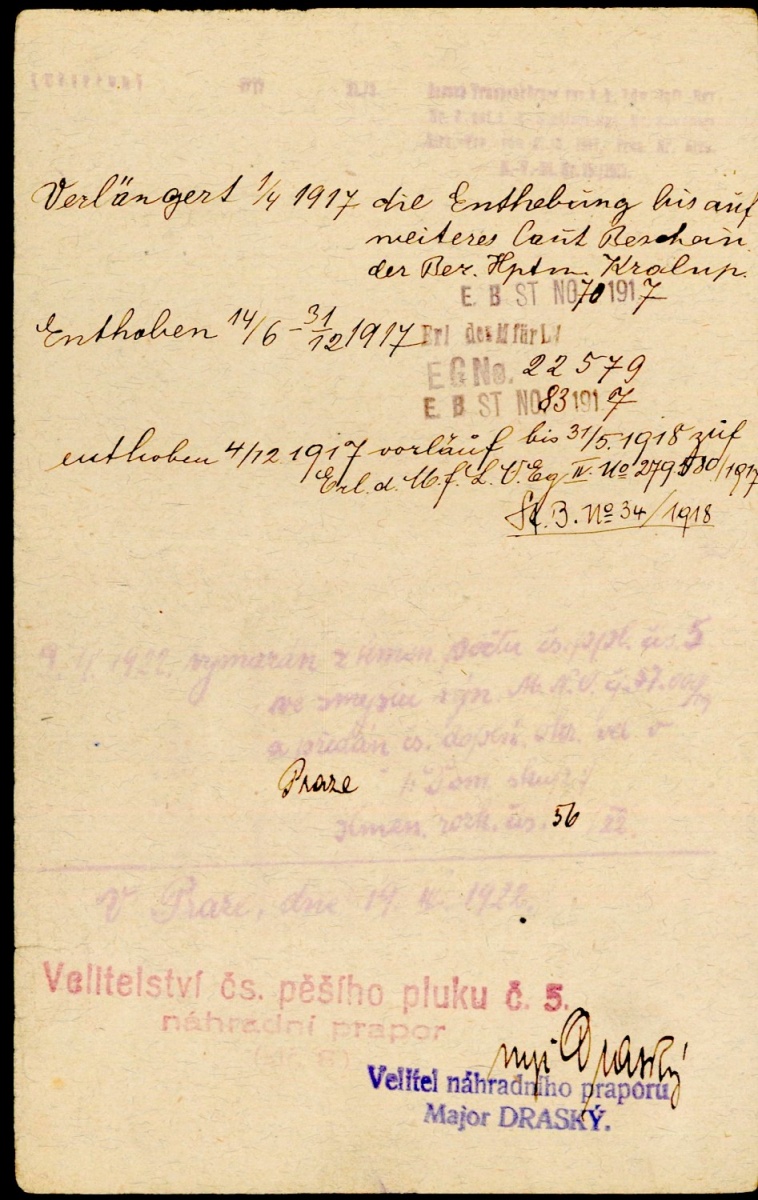 Verlängert 1/4 1917 die Enthebung bis auf
weiteres laut Beschein.
der Bez. Hptm. Kralup.
E. B. ST NO 70 1917
Enthoben 14/6 - 31/12 1917 Erl des M für LV
EG No. 22579
E. B ST NO 83 1917
enthoben 4/12 1917 vorläuf bis 31/5. 1918 zuf
Erl. d. M. f. L. V. Eg IV. No 279580/1917
St. B. No 34/1918
1922. vymazán z kmen. počtu čs. ppl. čís. 5
ve smyslu M. N. O. č. 57.
a předán čs. dopln. okr. vel. v
Praze
kmen. rozk. čís. 56
V Praze, dne 19. 1922.
Velitelství čs. pěšího pluku č. 5.
náhradní prapor
Draský
Velitel náhradního praporu
Major DRASKÝ.